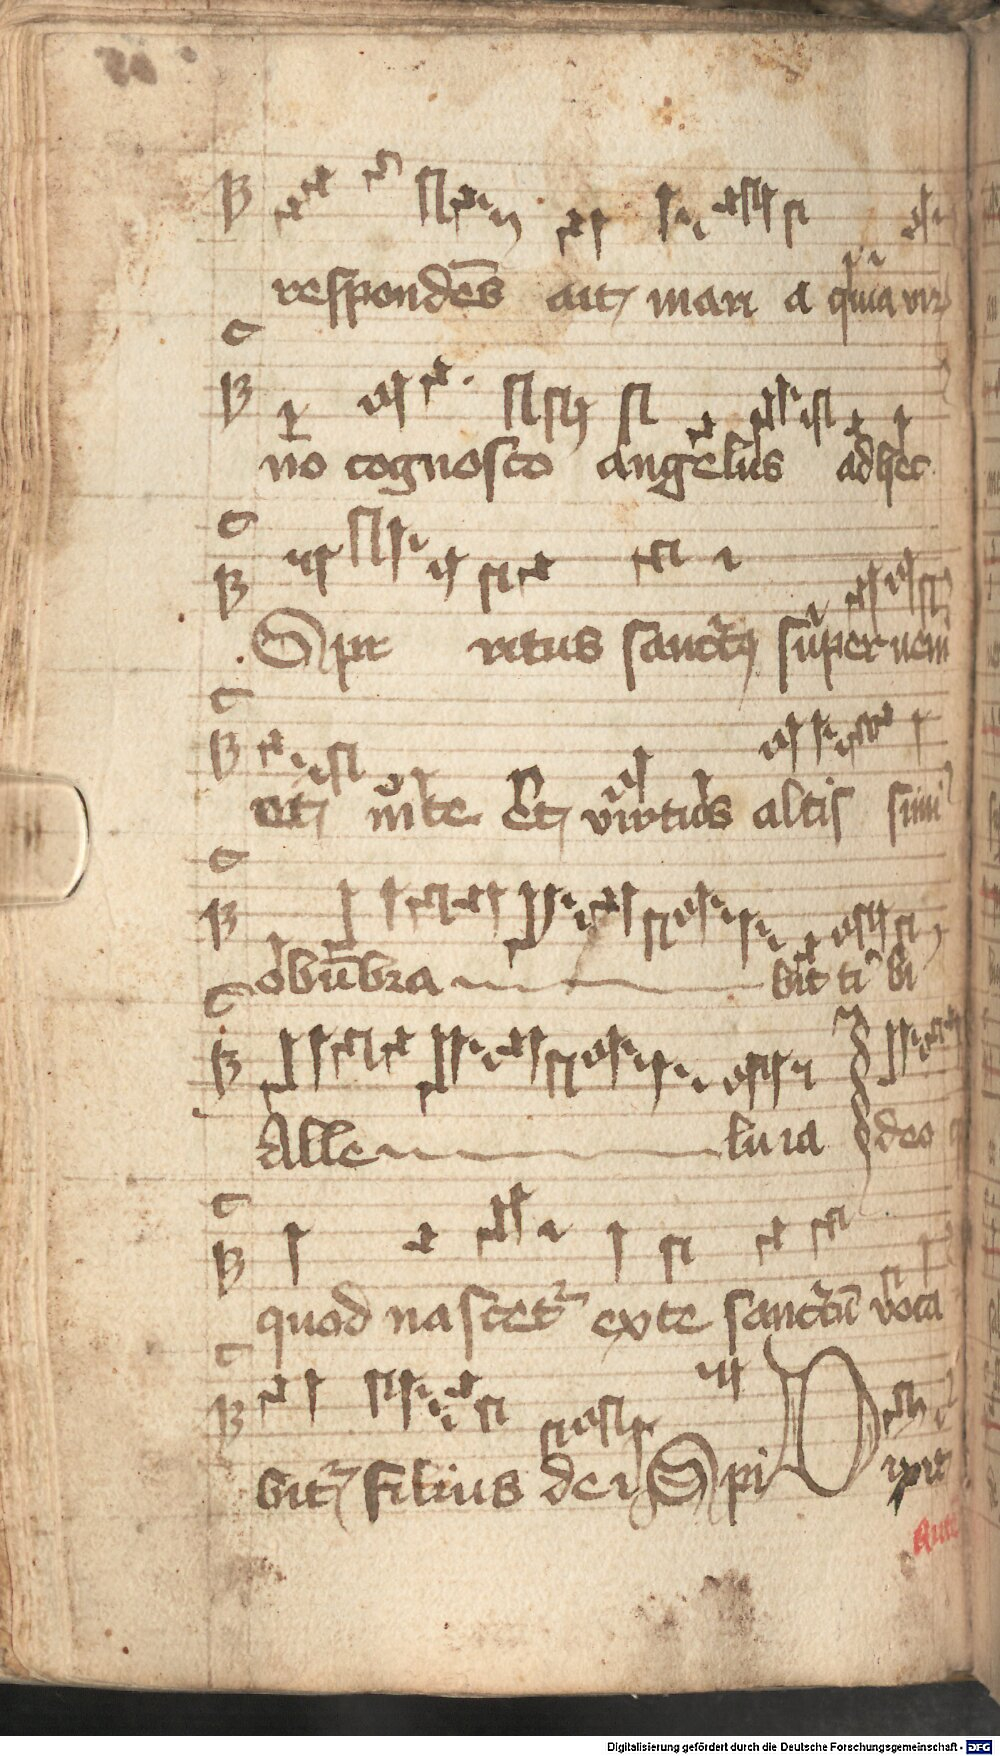 respondēs ait mari a quia vir
no cognosco Angelus adhec
Spi ritus sanctus superueni
et in te Et virtus altis simi
obūbra bit ti bi
Alle luia deo
quod nascet exte sanctū voca
bit filius dei Spi Dixit
Digitalisierung gefördert durch die Deutsche Forschungsgemeinschaft - DFG